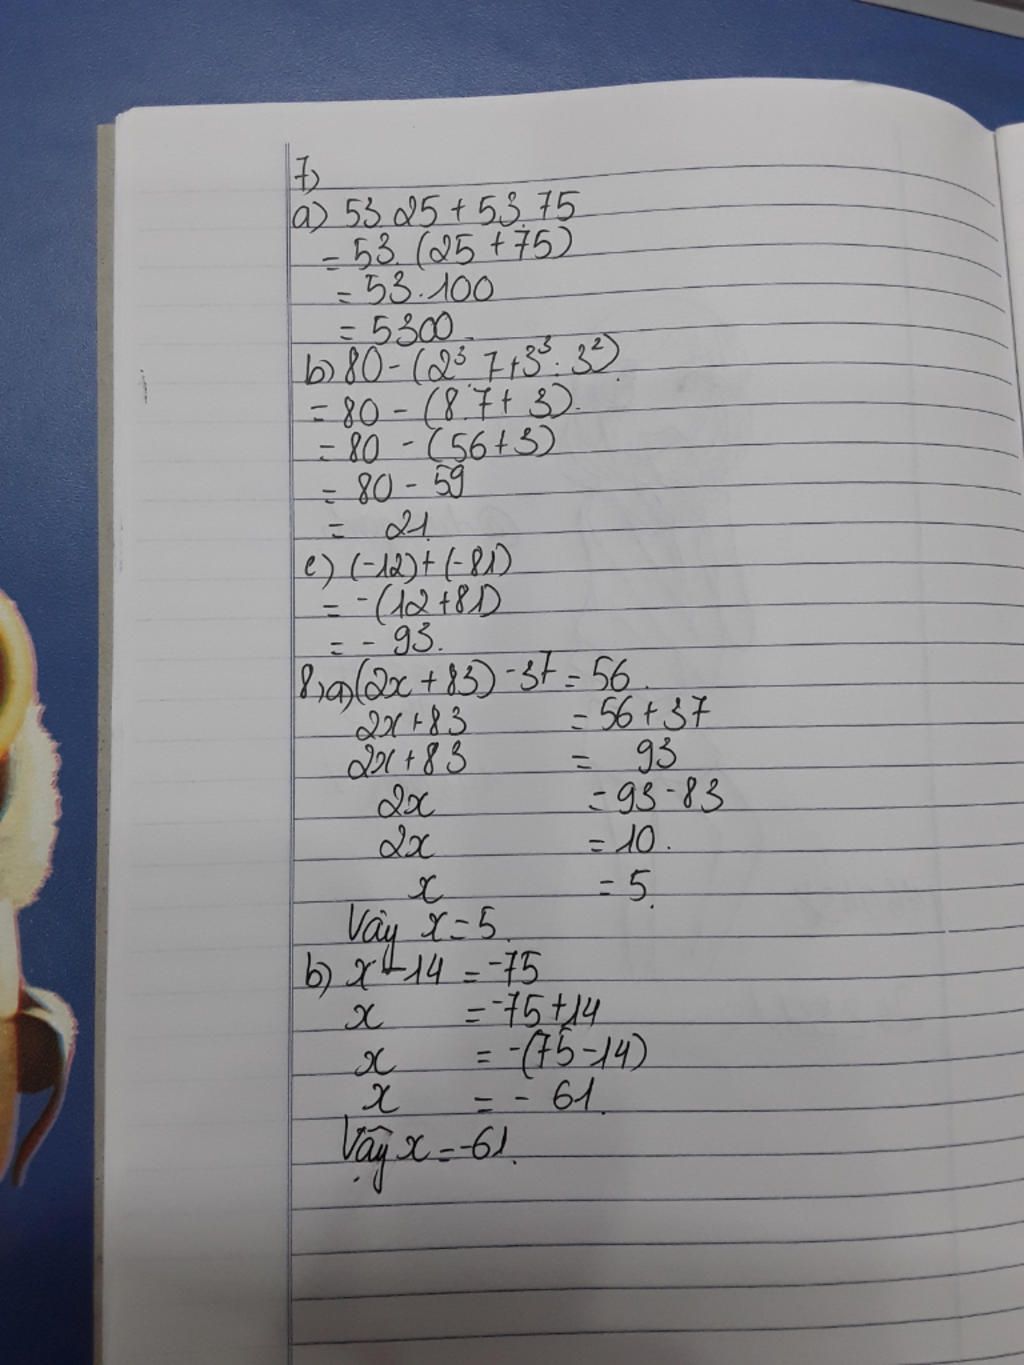 7)
a) 53.25 + 53.75
= 53. (25 + 75)
= 53.100
= 5300.
b) 80 - (2³.7 + 3³ : 3²)
= 80 - (8.7 + 3).
= 80 - (56 + 3)
= 80 - 59
= 21.
c) (-12) + (-81)
= -(12 + 81)
= - 93.
8) a) (2x + 83) - 37 = 56.
2x + 83 = 56 + 37
2x + 83 = 93
2x = 93 - 83
2x = 10.
x = 5.
Vậy x = 5.
b) x - 14 = -75
x = -75 + 14
x = -(75 - 14)
x = - 61.
Vậy x = -61.